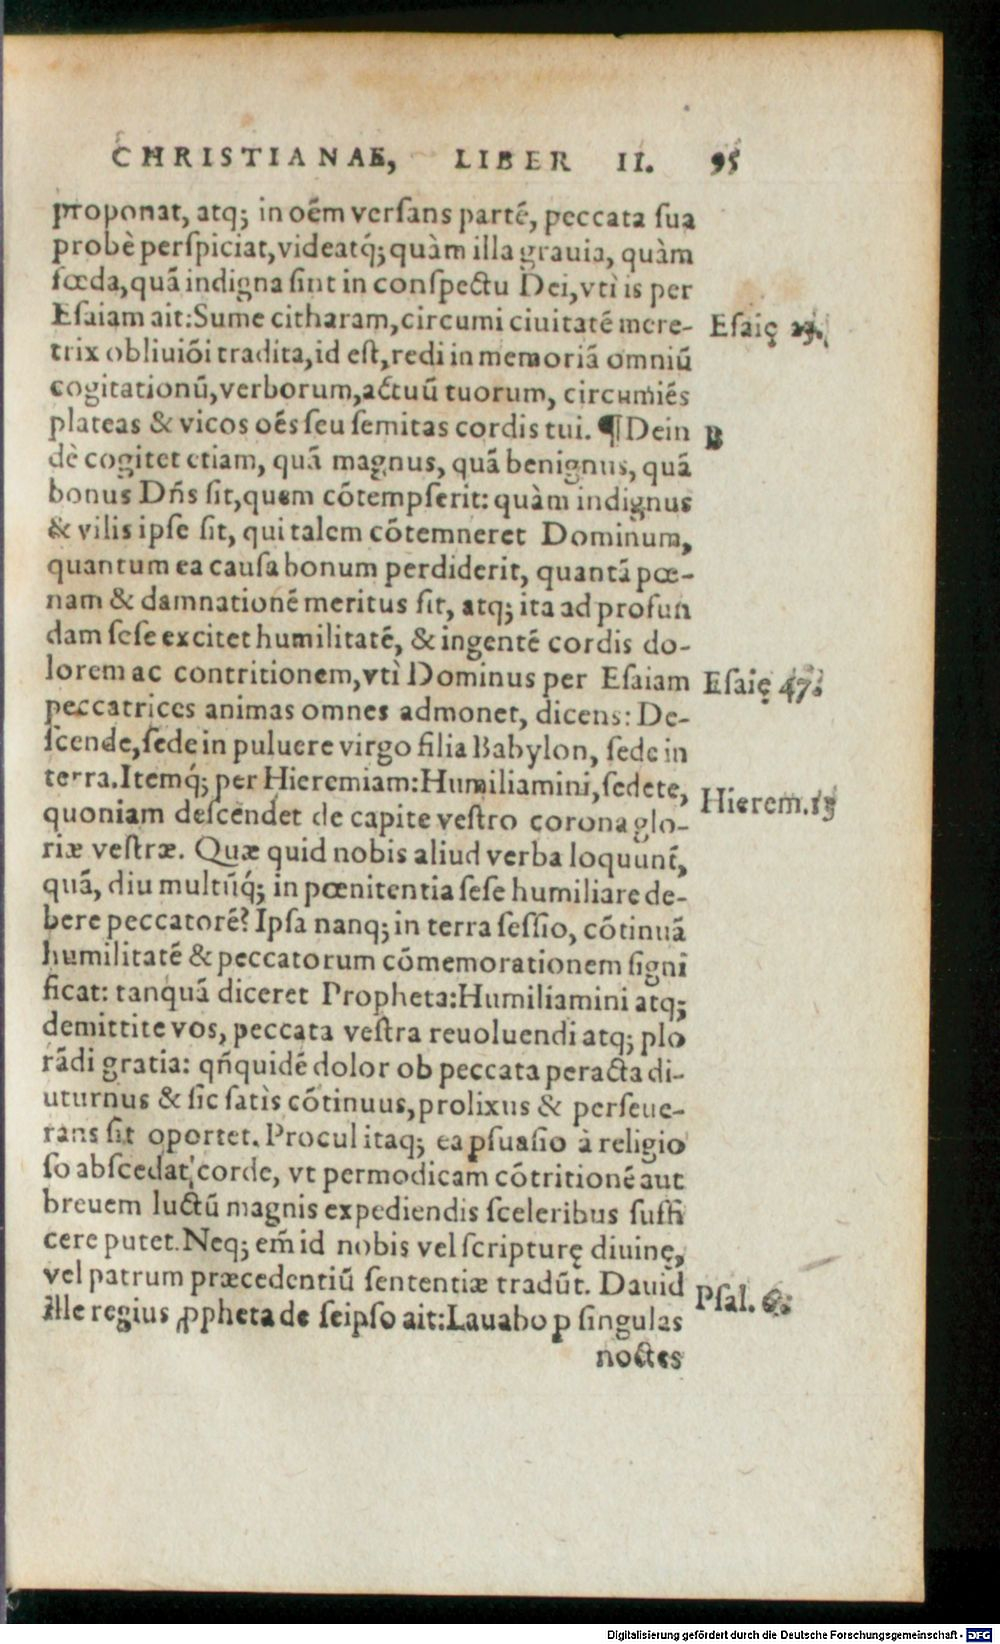 CHRISTIANAE, LIBER II. 95
proponat, atq; in oẽm versans partẽ, peccata sua
probè perspiciat, videatq́; quàm illa grauia, quàm
fœda, quã indigna sint in conspectu Dei, vti is per
Esaiam ait: Sume citharam, circumi ciuitatẽ mere-
Esaię 23.
trix obliuiõi tradita, id est, redi in memoriã omniũ
cogitationũ, verborum, actuũ tuorum, circumiẽs
plateas & vicos oẽs seu semitas cordis tui. ¶ Dein
B
dè cogitet etiam, quã magnus, quã benignus, quã
bonus Dñs sit, quem cõtempserit: quàm indignus
& vilis ipse sit, qui talem cõtemneret Dominum,
quantum ea causa bonum perdiderit, quantã pœ-
nam & damnationẽ meritus sit, atq; ita ad profun
dam sese excitet humilitatẽ, & ingentẽ cordis do-
lorem ac contritionem, vtì Dominus per Esaiam
Esaię 47.
peccatrices animas omnes admonet, dicens: De-
scende, sede in puluere virgo filia Babylon, sede in
terra. Itemq́; per Hieremiam: Humiliamini, sedete,
Hierem. 13
quoniam descendet de capite vestro corona glo-
riæ vestræ. Quæ quid nobis aliud verba loquunt̃,
quã, diu multũq́; in pœnitentia sese humiliare de-
bere peccatorẽ? Ipsa nanq; in terra sessio, cõtinuã
humilitatẽ & peccatorum cõmemorationem signi
ficat: tanquã diceret Propheta: Humiliamini atq;
demittite vos, peccata vestra reuoluendi atq; plo
rãdi gratia: qñquidẽ dolor ob peccata peracta di-
uturnus & sic satìs cõtinuus, prolixus & perseue-
rans sit oportet. Procul itaq; ea ꝑsuasio à religio
so abscedat corde, vt permodicam cõtritionẽ aut
breuem luctũ magnis expediendis sceleribus suffi
cere putet. Neq; em̃ id nobis vel scripturę diuinę,
vel patrum præcedentiũ sententiæ tradũt. Dauid
Psal. 6.
ille regius ꝓpheta de seipso ait: Lauabo ꝑ singulas
noctes
Digitalisierung gefördert durch die Deutsche Forschungsgemeinschaft - DFG